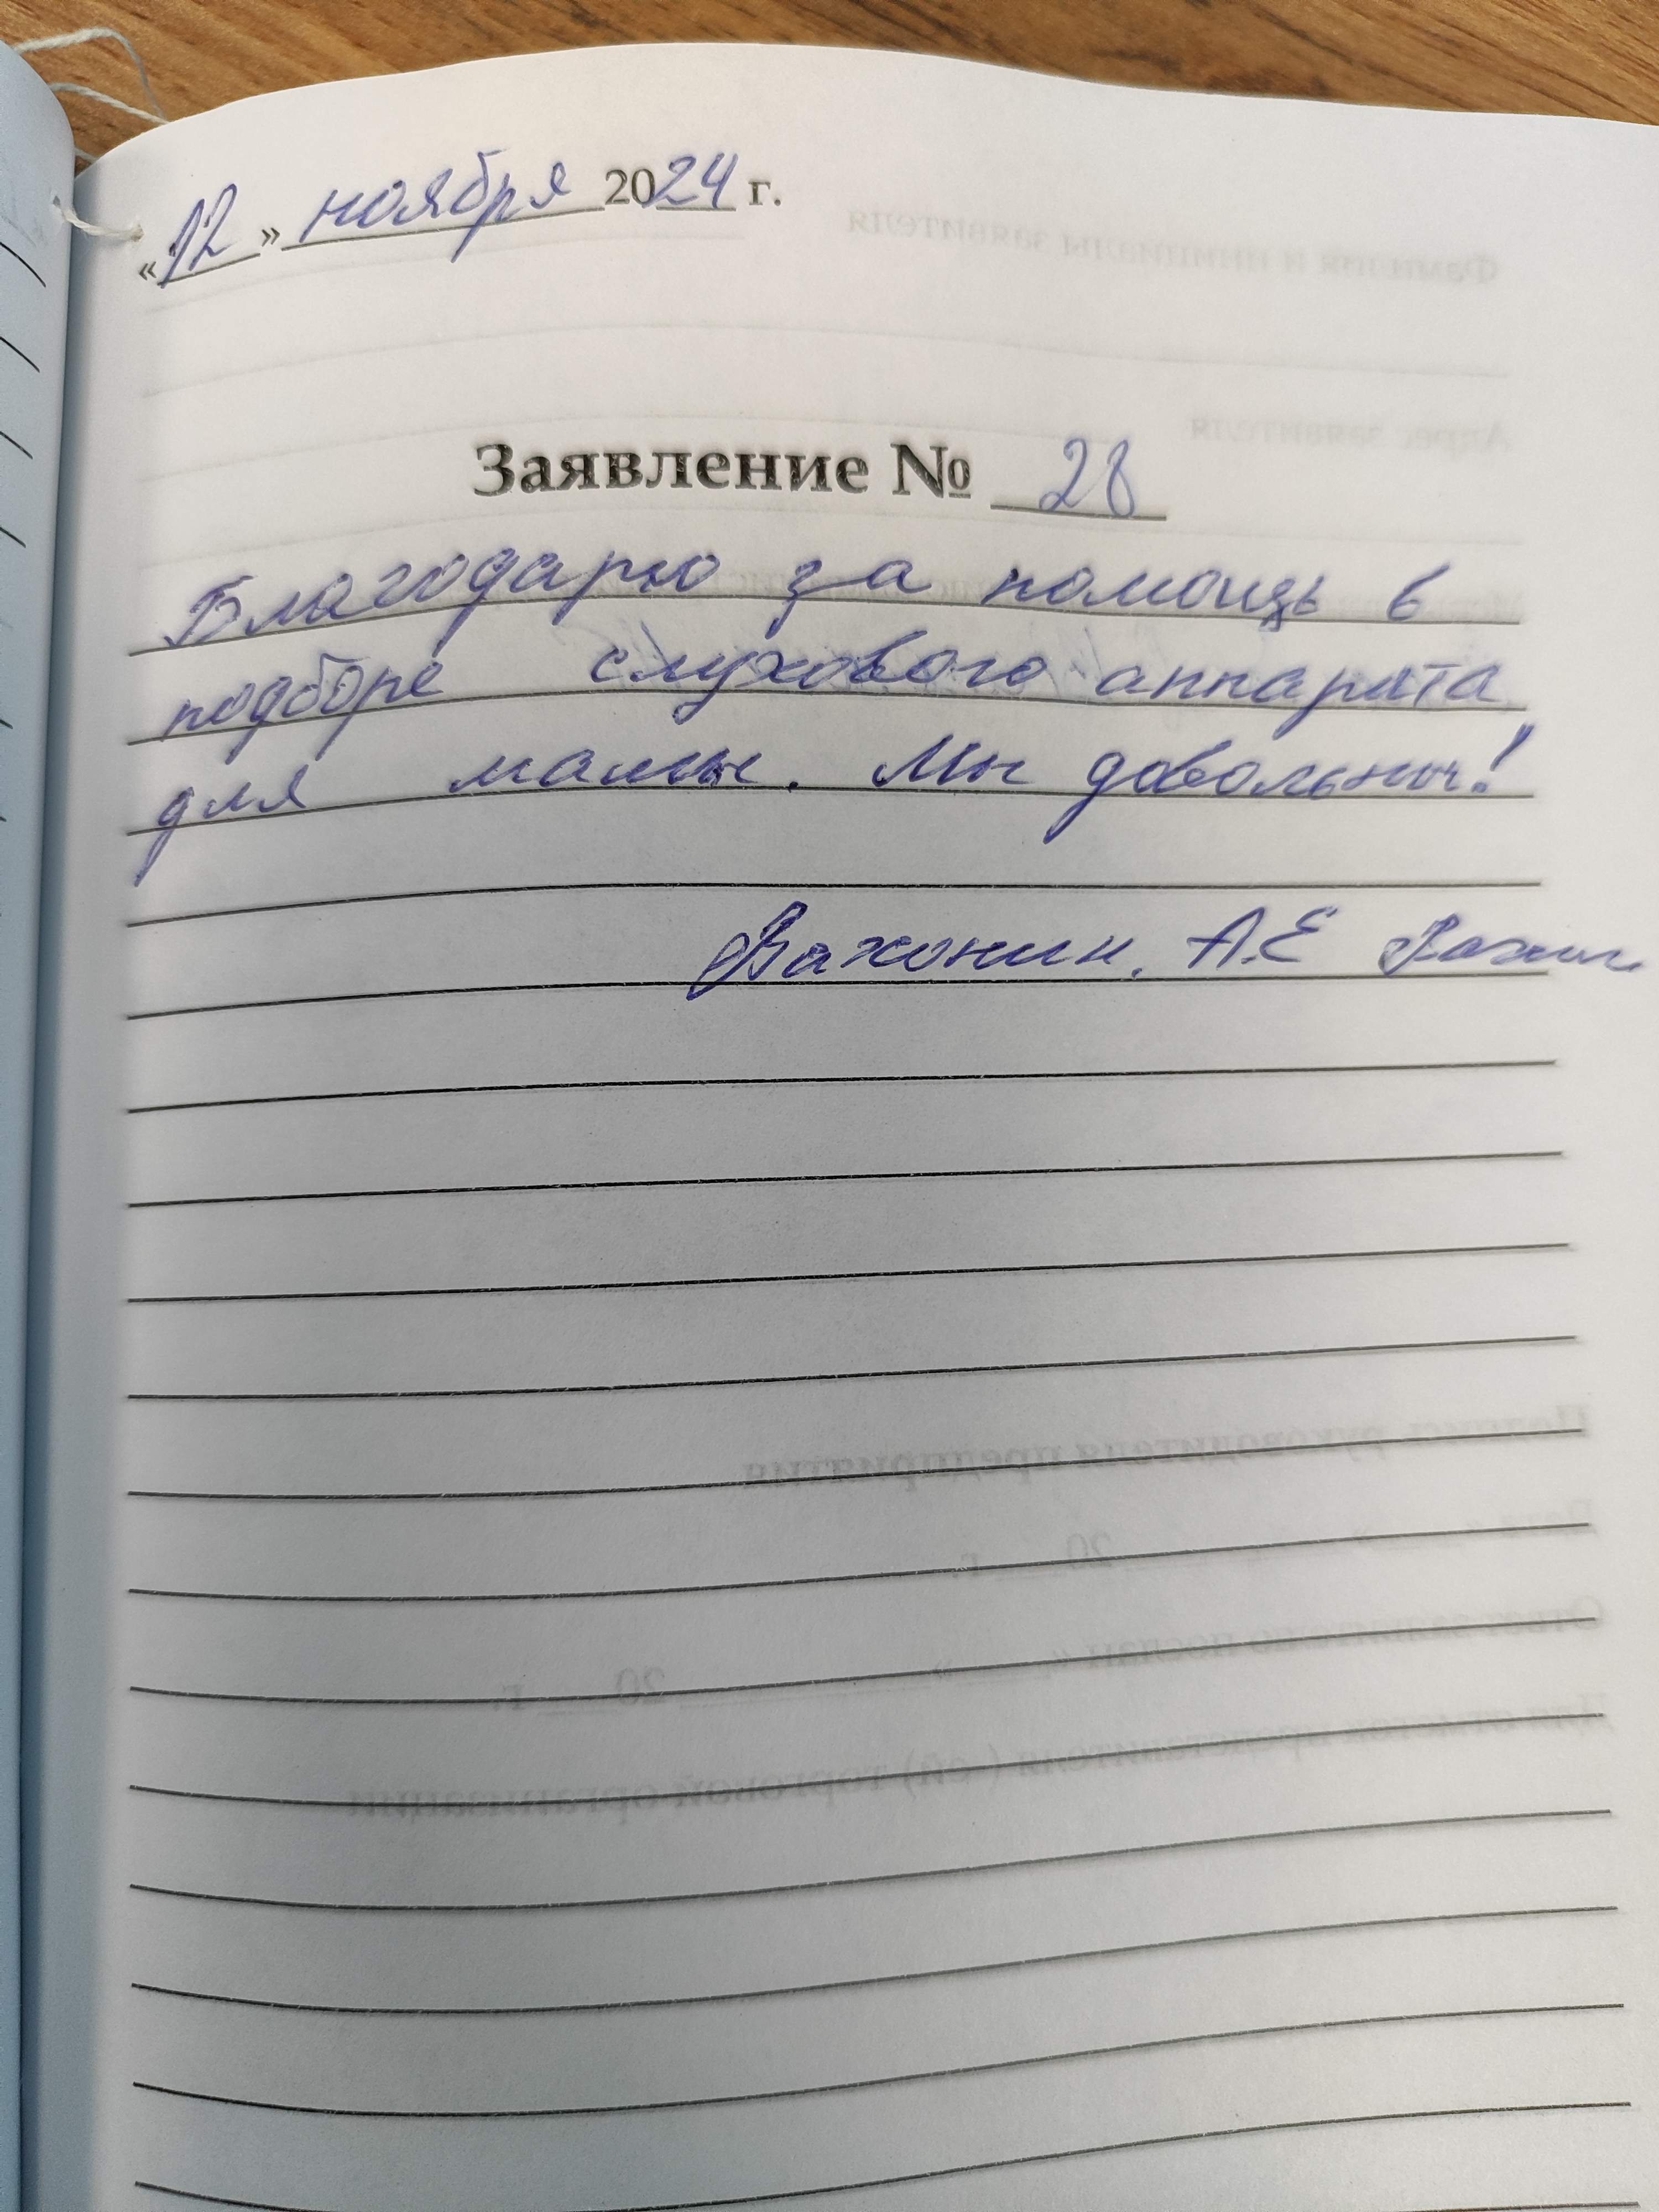 «12» ноября 2024 г.
Заявление № 28
Благодарю за помощь в
подборе слухового аппарата
для мамы. Мы довольны!
Вахонин. А.Е